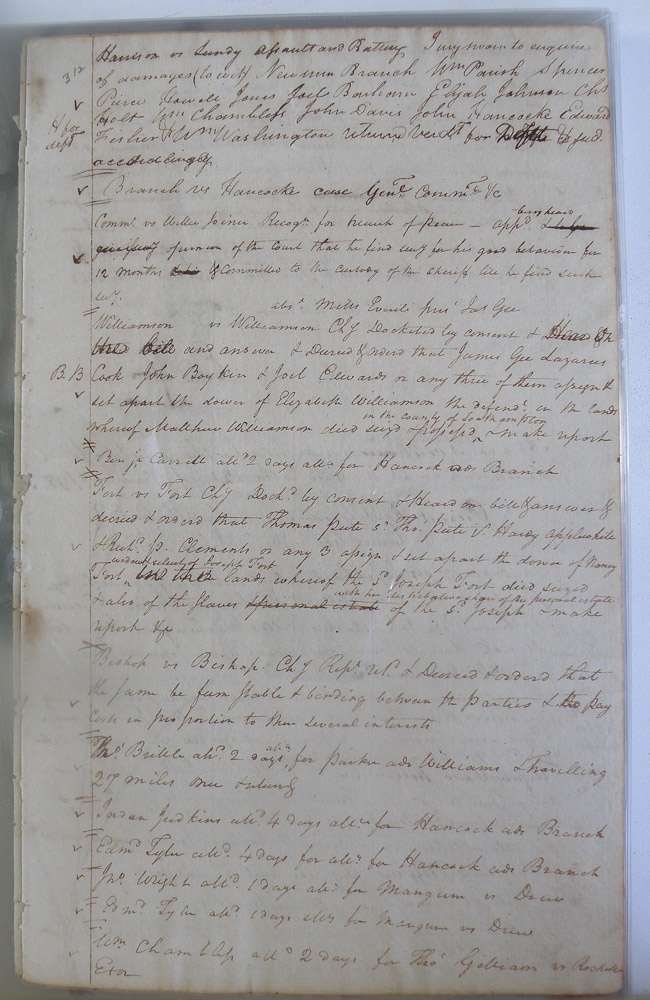 Harrison vs Lundy Assault and Battery Jury sworn to enquire
312
of damages (to wit) Newsum Branch Wm Parish Spencer
Pierce Howell Jones Joel Bonham Elijah Johnson Chs
Holt Wm Chambliss John Davis John Hancocke Edward
Jt for deft
Fisher & Wm Washington returned Verdt for Deft & Jud.
accordingly
Branch vs Hancocke case Genl Commn &c
Comm. vs Willie Joiner Recogn for breach of peace — appd
being heard
opinion of the court that he find secy for his good behaviour for
12 months & committed to the custody of the sheriff till he find such
secy.
absn Mills Everitt prest Jas Gee
Williamson vs Williamson Chy Docketed by consent & Heard On
the bill and answer & Decreed & orderd that James Gee Lazarus
B.B Cook John Boykin & Joel Edwards or any three of them assign &
set apart the dower of Elizabeth Williamson the defendt in the lands
in the county of Southampton
whereof Matthew Williamson died seizd & possessd & make report
Benja Carrell attd 2 days for Hancock ads Branch
Fort vs Fort Chy Dockd by consent & Heard on bill & answer &
decreed & orderd that Thomas Pete Sr Tho. Pete Jr Harvy Applewhite
& Richd P. Clements or any 3 assign & set apart the dower of Nancy
widow & relict of Joseph Fort
Fort, in the lands whereof the sd Joseph Fort died seized
with her distributive share of the personal estate
& also of the slaves & personal estate of the sd Joseph & make
report &c
Bishop vs Bishop. Chy Rept retd & Decreed & orderd that
the same be firm stable & binding between the Parties & to pay
Costs in proportion to their several interests
Thos Brittle attd 2 days for Parker ads Williams & Travelling
27 miles
Jordan Judkins attd 4 days for Hancock ads Branch
Edmd Tyler attd 4 days for Hancock ads Branch
Jno Wright attd 1 days for Mangum vs Drew
Edmd Tyler attd 1 days for Mangum vs Drew
Wm Chambliss attd 2 days for Thos Gilliam vs
Exor